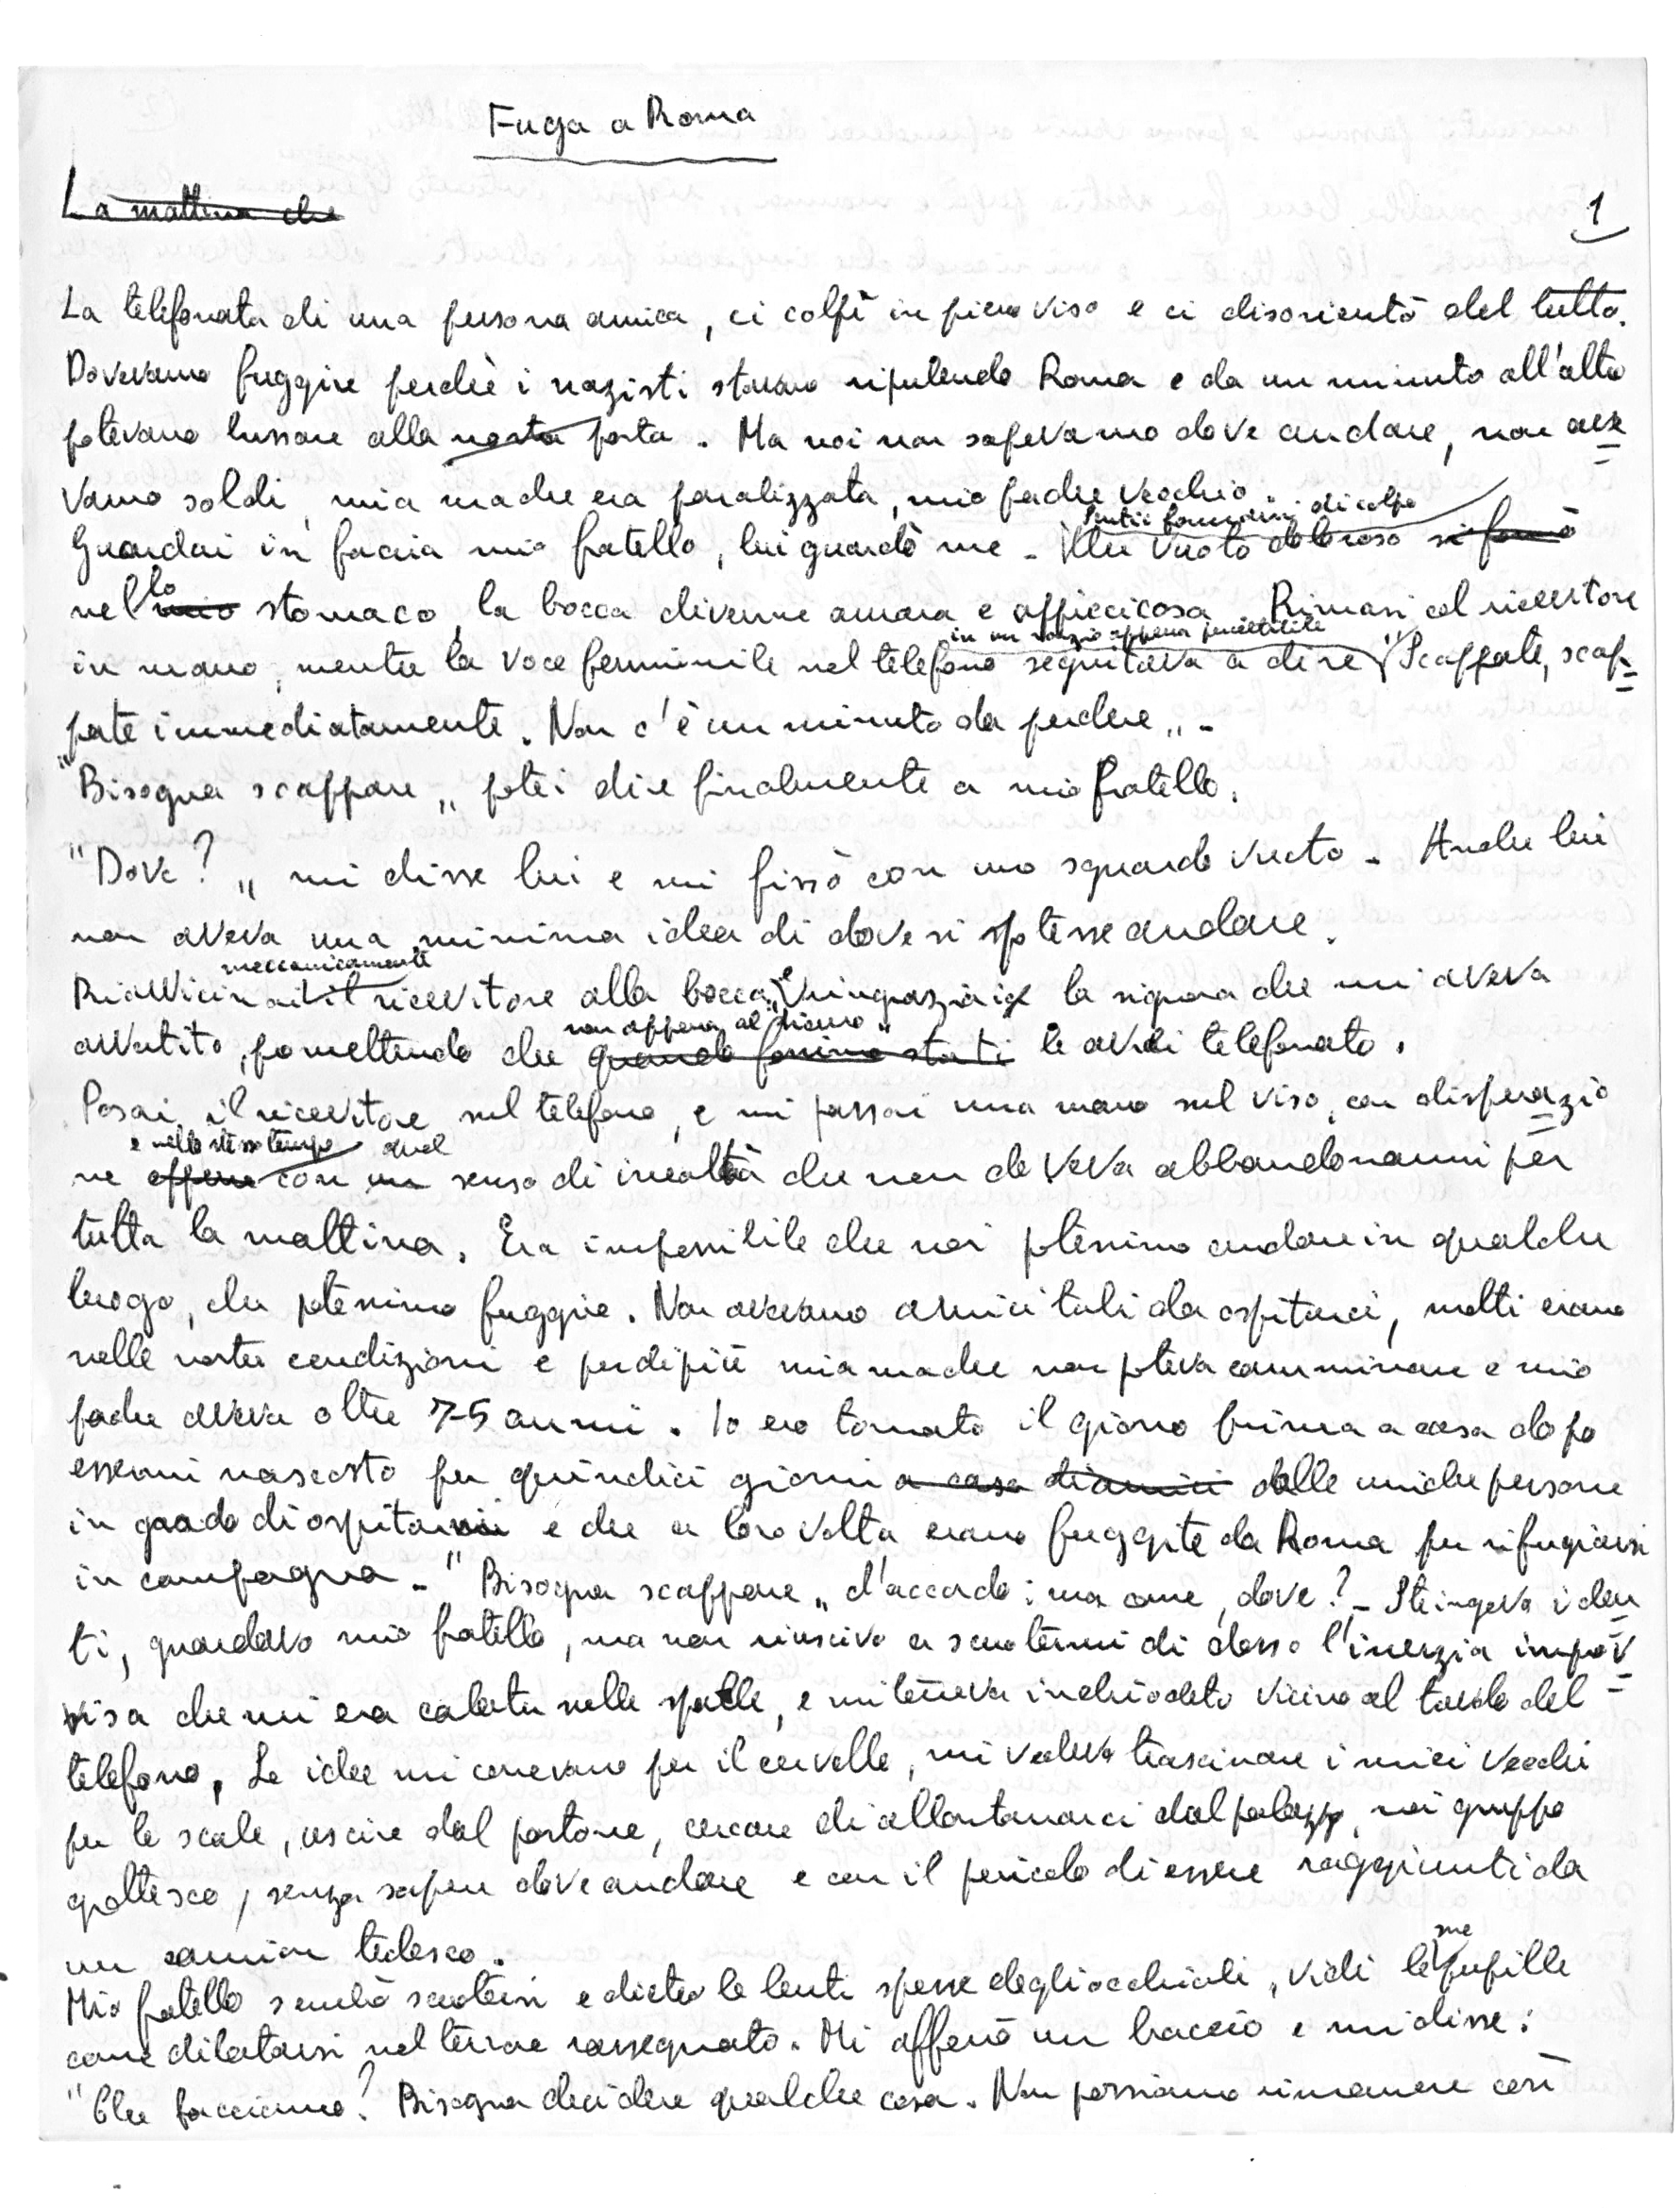 Fuga a Roma
La mattina che
1
La telefonata di una persona amica, ci colpì in pieno viso e ci disorientò del tutto.
Dovevamo fuggire perchè i nazisti stavano ripulendo Roma e da un minuto all'altro
potevano bussare alla nostra porta. Ma noi non sapevamo dove andare, non ave=
vamo soldi, mia madre era paralizzata, mio padre vecchio.
Sentii formarsi di colpo
Guardai in faccia mio fratello, lui guardò me - Un vuoto doloroso si formò
lo
nel mio stomaco, la bocca divenne amara e appiccicosa - Rimasi col ricevitore
in un ronzio appena percettibile
in mano, mentre la voce femminile nel telefono seguitava a dire "Scappate, scap=
pate immediatamente. Non c'è un minuto da perdere" -
"Bisogna scappare" potei dire finalmente a mio fratello.
"Dove?" mi disse lui e mi fissò con uno sguardo vuoto - Anche lui
non aveva una minima idea di dove si potesse andare.
meccanicamente
Riavvicinai il ricevitore alla bocca e ringraziai la signora che mi aveva
non appena "al sicuro"
avvertito, promettendo che quando fossimo stati le avrei telefonato.
Posai il ricevitore sul telefono, e mi passai una mano sul viso, con disperazio=
e nello stesso tempo quel
ne con un senso di irealtà che non doveva abbandonarmi per
tutta la mattina. Era impossibile che noi potessimo andare in qualche
luogo, che potessimo fuggire. Non avevamo amici tali da ospitarci, molti erano
nelle nostre condizioni e perdipiù mia madre non poteva camminare e mio
padre aveva oltre 75 anni. Io ero tornato il giorno prima a casa dopo
essermi nascosto per quindici giorni a casa di amici dalle uniche persone
in grado di ospitarmi e che a loro volta erano fuggite da Roma per rifugiarsi
in campagna - "Bisogna scappare" d'accordo: ma come, dove? - Stringevo i den=
ti, guardavo mio fratello, ma non riuscivo a scuotermi di dosso l'inerzia improv=
visa che mi era calata nelle spalle, e mi teneva inchiodato vicino al tavolo del
telefono. Le idee mi correvano per il cervello, mi vedevo trascinare i miei vecchi
per le scale, uscire dal portone, cercare di allontanarci dal palazzo, noi gruppo
grottesco, senza sapere dove andare e con il pericolo di essere raggiunti da
un camion tedesco.
Mio fratello sembrò scuotersi e dietro le lenti spesse degli occhiali, vidi le sue pupille
come dilatarsi nel terrore rassegnato. Mi afferrò un braccio e mi disse:
"Che facciamo? Bisogna decidere qualche cosa. Non possiamo rimanere così